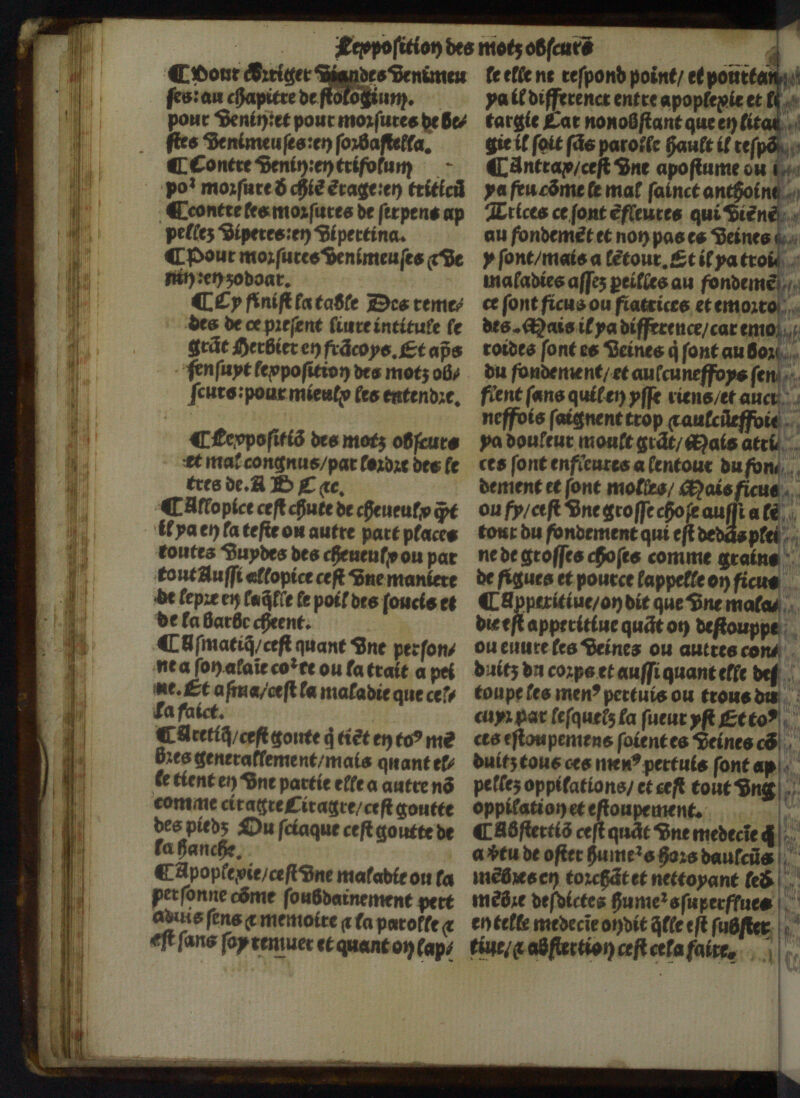 Lexposition des motz obscurs
¶ Pour corriger viandes venimeu
ses: au chapitre de stologium.
pour venin: et pour morsures de be/
stes venimeuses: en sorbastella.
¶ Contre venin: en trifolum
poᷣ morsure d̄ chiē ērage: en triticū
¶ contre les morsures de serpens ap
pellez viperes: en vipertina.
¶ Pour morsures venimeuses ⁊ ve
nin: en zodoar.
¶ Cy finist la table Des reme/
des de ce present liure intitule le
grāt Herbier en frācoys. Et ap̄s
sensuyt lexposition des motz ob/
scurs: pour mieulx les entendre.
¶ Lexpositiō des motz obscurs
et mal congnus/par lordre des le
tres de. A B C ⁊c.
¶ Allopice cest chute de cheueulx q̄t
il ya en la teste ou autre part places
toutes vuydes des cheueulx ou par
tout Aussi allopice cest vne maniere
de lepre en laq̄lle le poil des soucis et
de la barbe cheent.
¶ Asmatiq̄/cest quant vne person/
ne a son alaīe coᷣte ou la trait a pei
ne. Et asma/cest la maladie que cel/
la faict.
¶ Aretiq̄/cest goute q̄ tiēt en toꝰ mē
bres generallement/mais quant el/
le tient en vne partie elle a autre nō
comme ciragre Ciragre/cest goutte
des piedz Ou sciaque cest goutte de
la hanche.
¶ Apoplexie/cest vne maladie ou la
personne cōme soubdainement pert
aduis sens ⁊ memoire ⁊ la parolle ⁊
est sans soy remuer et quant on lap/
le elle ne respond point/ et pourtant
ya il difference entre apoplexie et
targie Car nonobstant que en
gie il soit sās parolle hault il respō
¶ Antrax/cest vne apostume ou
ya feu cōme le mal sainct anthoine
Atrices ce sont ēfleures qui viēnē
au fondemēt et non pas es veines
y sont/mais a lētour. Et il ya
maladies assez peilles au fondemē
ce sont ficus ou fiatrices et
des. Mais il ya difference/car
roides sont es veines q̄ sont au
du fondement/ et aulcuneffoys
flent sans quil en ysse riens/et
neffois saignent trop ⁊
ya douleur moult grāt/ Mais
ces sont enfleures a lentour du
dement et sont molles/ Mais ficus
ou fy/cest vne grosse chose aussi a lē
tour du fondement qui est dedās
ne de grosses choses comme grains
de figues et pource lappelle on ficus
¶ Apperitiue/on dit que vne mala/
die est apperitiue quāt on destouppe
ou euure les veines ou autres con/
duitz du corps et aussi quant elle
toupe les menꝰ pertuis ou trous du
cuyr par lesquelz la sueur yst Et toꝰ
ces estoupemens soient es veines cō
duitz tous ces menꝰ pertuis sont ap
pellez oppilations/ et cest tout vng
oppilation et estoupement.
¶ Abstertiō cest quāt vne medecīe
a v̄tu de oster humeᷣs hors daulcūs
mēbres en torchāt et nettoyant
mēbre desdictes humeᷣs superflues
en telle medecīe on dit q̄lle est subster
tiue/⁊ abstertion cest cela faire.